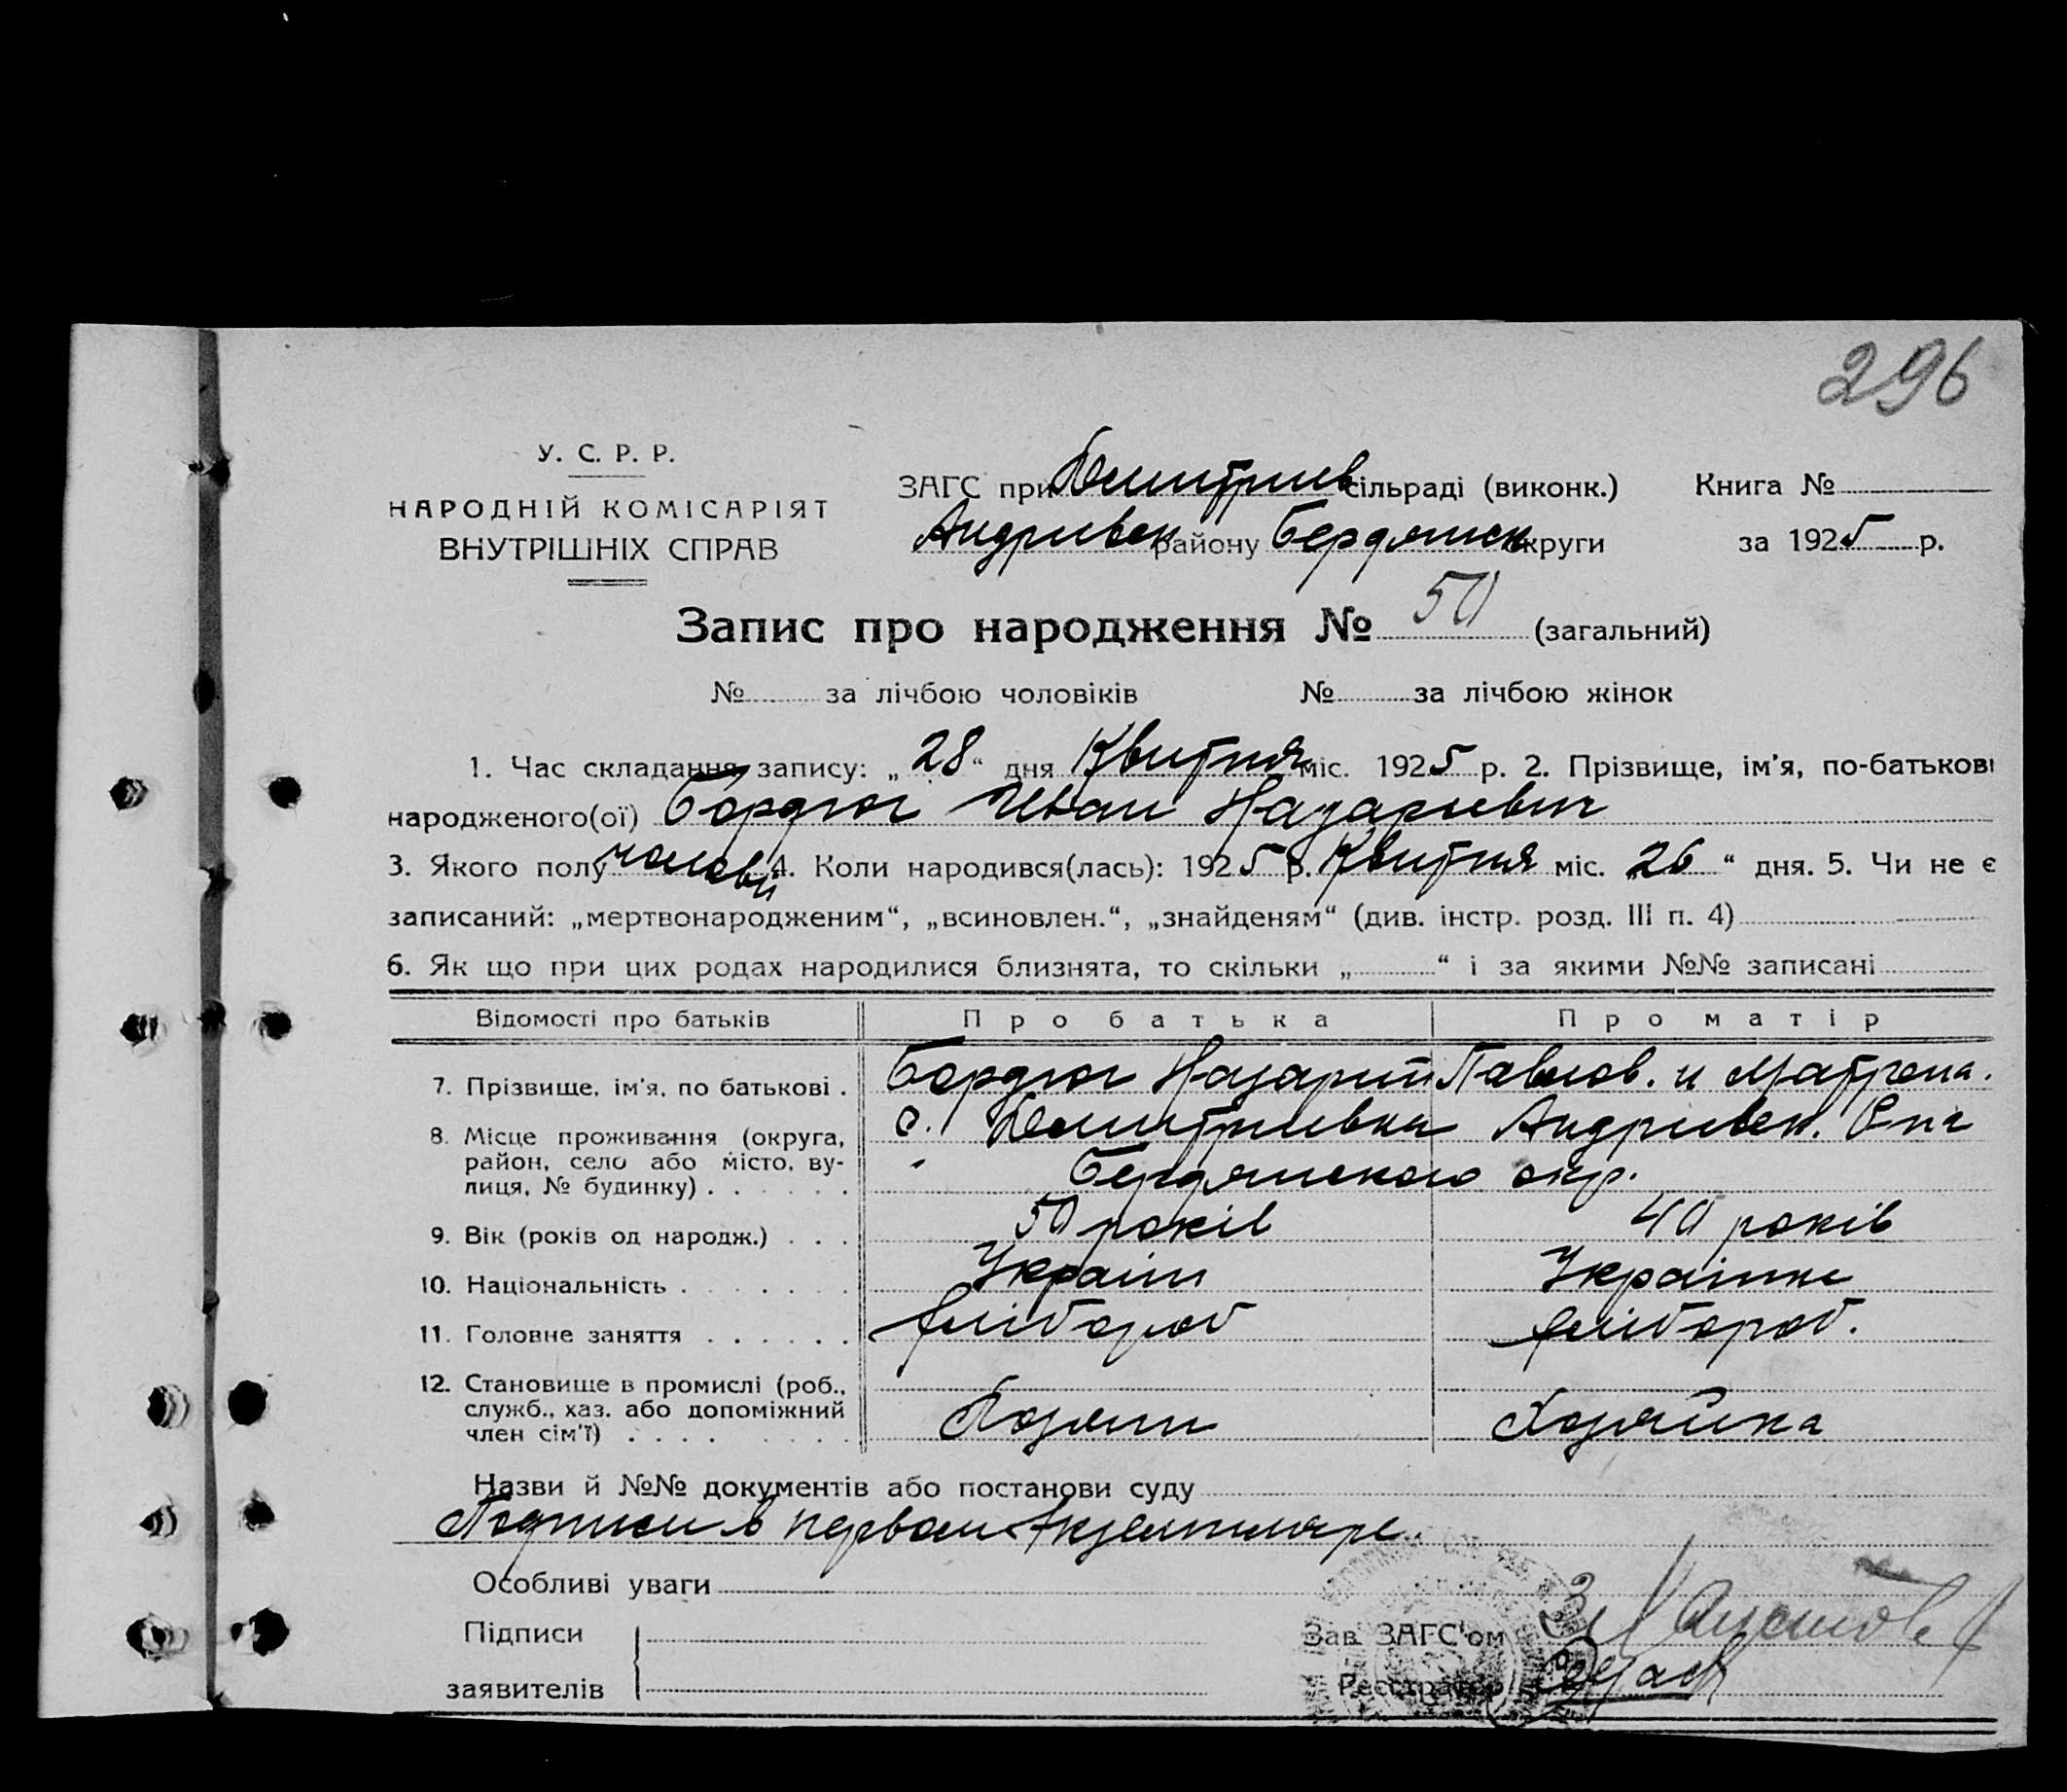 296
У. С. Р. Р.
НАРОДНІЙ КОМІСАРІЯТ
ВНУТРІШНІХ СПРАВ
ЗАГС при Дмитриев сільраді (виконк.) Книга №
Андриевск району Бердянск округи за 1925 р.
Запис про народження № 50 (загальний)
№ за лічбою чоловіків № за лічбою жінок
1. Час складання запису: „28“ дня Квитня міс. 1925 р. 2. Прізвище, ім'я, по-батькові
народженого(ої) Бордюг Иван Назариевич
3. Якого полу чоловій 4. Коли народився(лась): 1925 р. Квитня міс. „26“ дня. 5. Чи не є
записаний: „мертвонародженим“, „всиновлен.“, „знайденям“ (див. інстр. розд. III п. 4)
6. Як що при цих родах народилися близнята, то скільки „ “ і за якими №№ записані
Відомості про батьків Про батька Про матір
7. Прізвище, ім'я, по батькові . Бордюг Назарий Павлов. и Матрона.
8. Місце проживання (округа, с. Дмитриевка Андриевск.
район, село або місто, ву- Бердянского окр.
лиця, № будинку)
9. Вік (років од народж.) . . . 50 років 40 років
10. Національність Україн Українка
11. Головне заняття хлібороб хлібороб.
12. Становище в промислі (роб.,
служб., хаз. або допоміжний Хозяин Хозяйка
член сім'ї)
Назви й №№ документів або постанови суду
Подписи в первом екземпляре.
Особливі уваги
Підписи
заявителів
Зав. ЗАГС'ом
Реєстратор